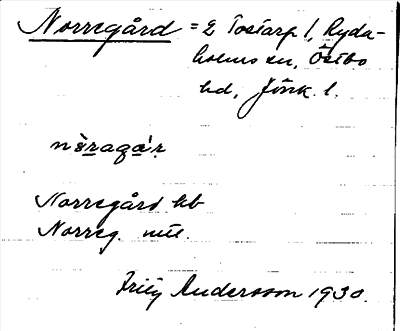 Norregård = E Tostarp 1, Ryda-
holms sn, Östbo
hd, Jönk. l.
nòragɑ́r
Norregård hb
Norreg. mtl.
Frity Andersson 1930.